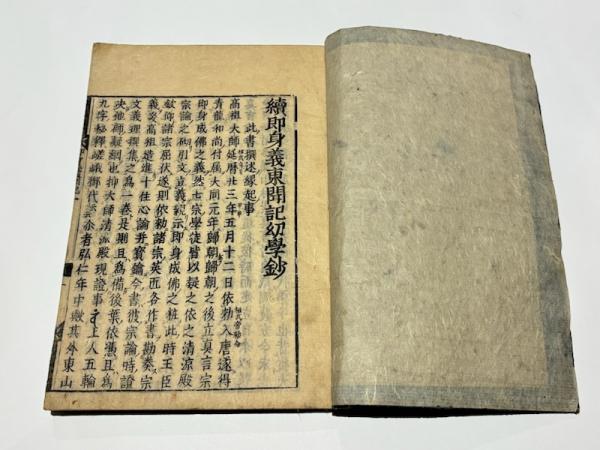 續即身義東聞記幼學鈔
此書撰述緣起事
高祖大師延曆廿三年五月十二日依勅入唐遂得
青龍和尚付属大同元年歸朝歸朝之後立真言宗
即身成佛之義然七宗學徒皆以疑之依之清凉殿
宗論之砌引文立義説示即身成佛之粧此時王臣
歓仰諸宗屈伏遂則依勅諸宗英匠各作書勘奏宗
義矣高祖造進十住心論并寳鑰今書彼宗論時證
文義理撰集之為一卷是則且為備後葉依憑且為
決他師疑網也抑大師清凉殿現證事上人五輪
九字秘釋嵯峨御代亦者弘仁年中歟其外東山